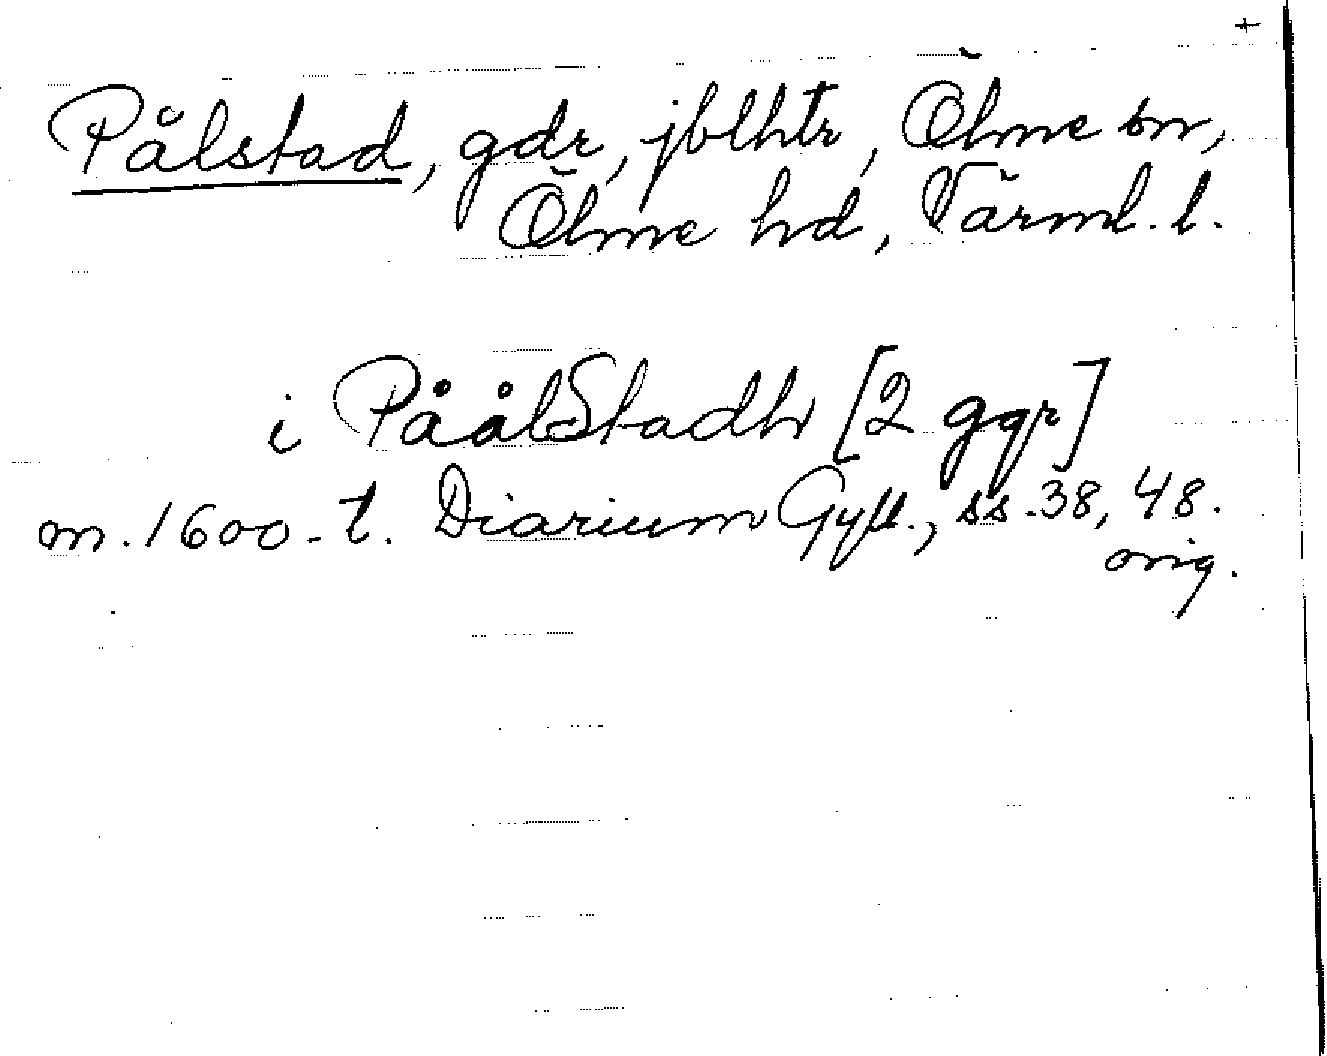 +
Pålstad, gdr, jblhtr, Ölme sn,
Ölme hd, Värml. l.
i PåålStadh [2 ggr]
m. 1600-t. Diarium Gyll., ss. 38, 48.
orig.